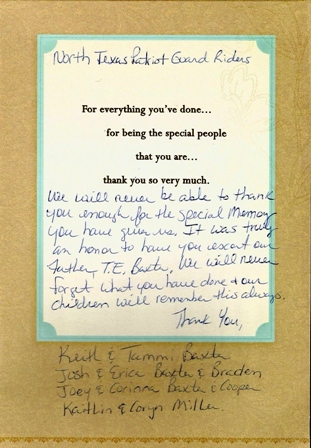 North Texas Patriot Guard Riders
For everything you've done...
for being the special people
that you are...
thank you so very much.
We will never be able to thank
you enough for the special memory
you have given us. It was truly
an honor to have you escort our
father, T.E. Baxter. We will never
forget what you have done & our
children will remember this always.
Thank You,
Keith & Tammi Baxter
Josh & Erica Baxter & Braden
Joey & Corinna Baxter & Cooper
Kaitlin & Coryn Miller